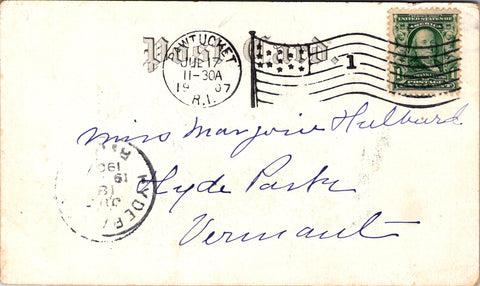 Post Card.
PAWTUCKET
JUL 17
11-30A
1907
R.I.
1
UNITED STATES OF AMERICA
POSTAGE
Miss Marjorie Hulbard
Hyde Park
Vermont
HYDE P
19
1907